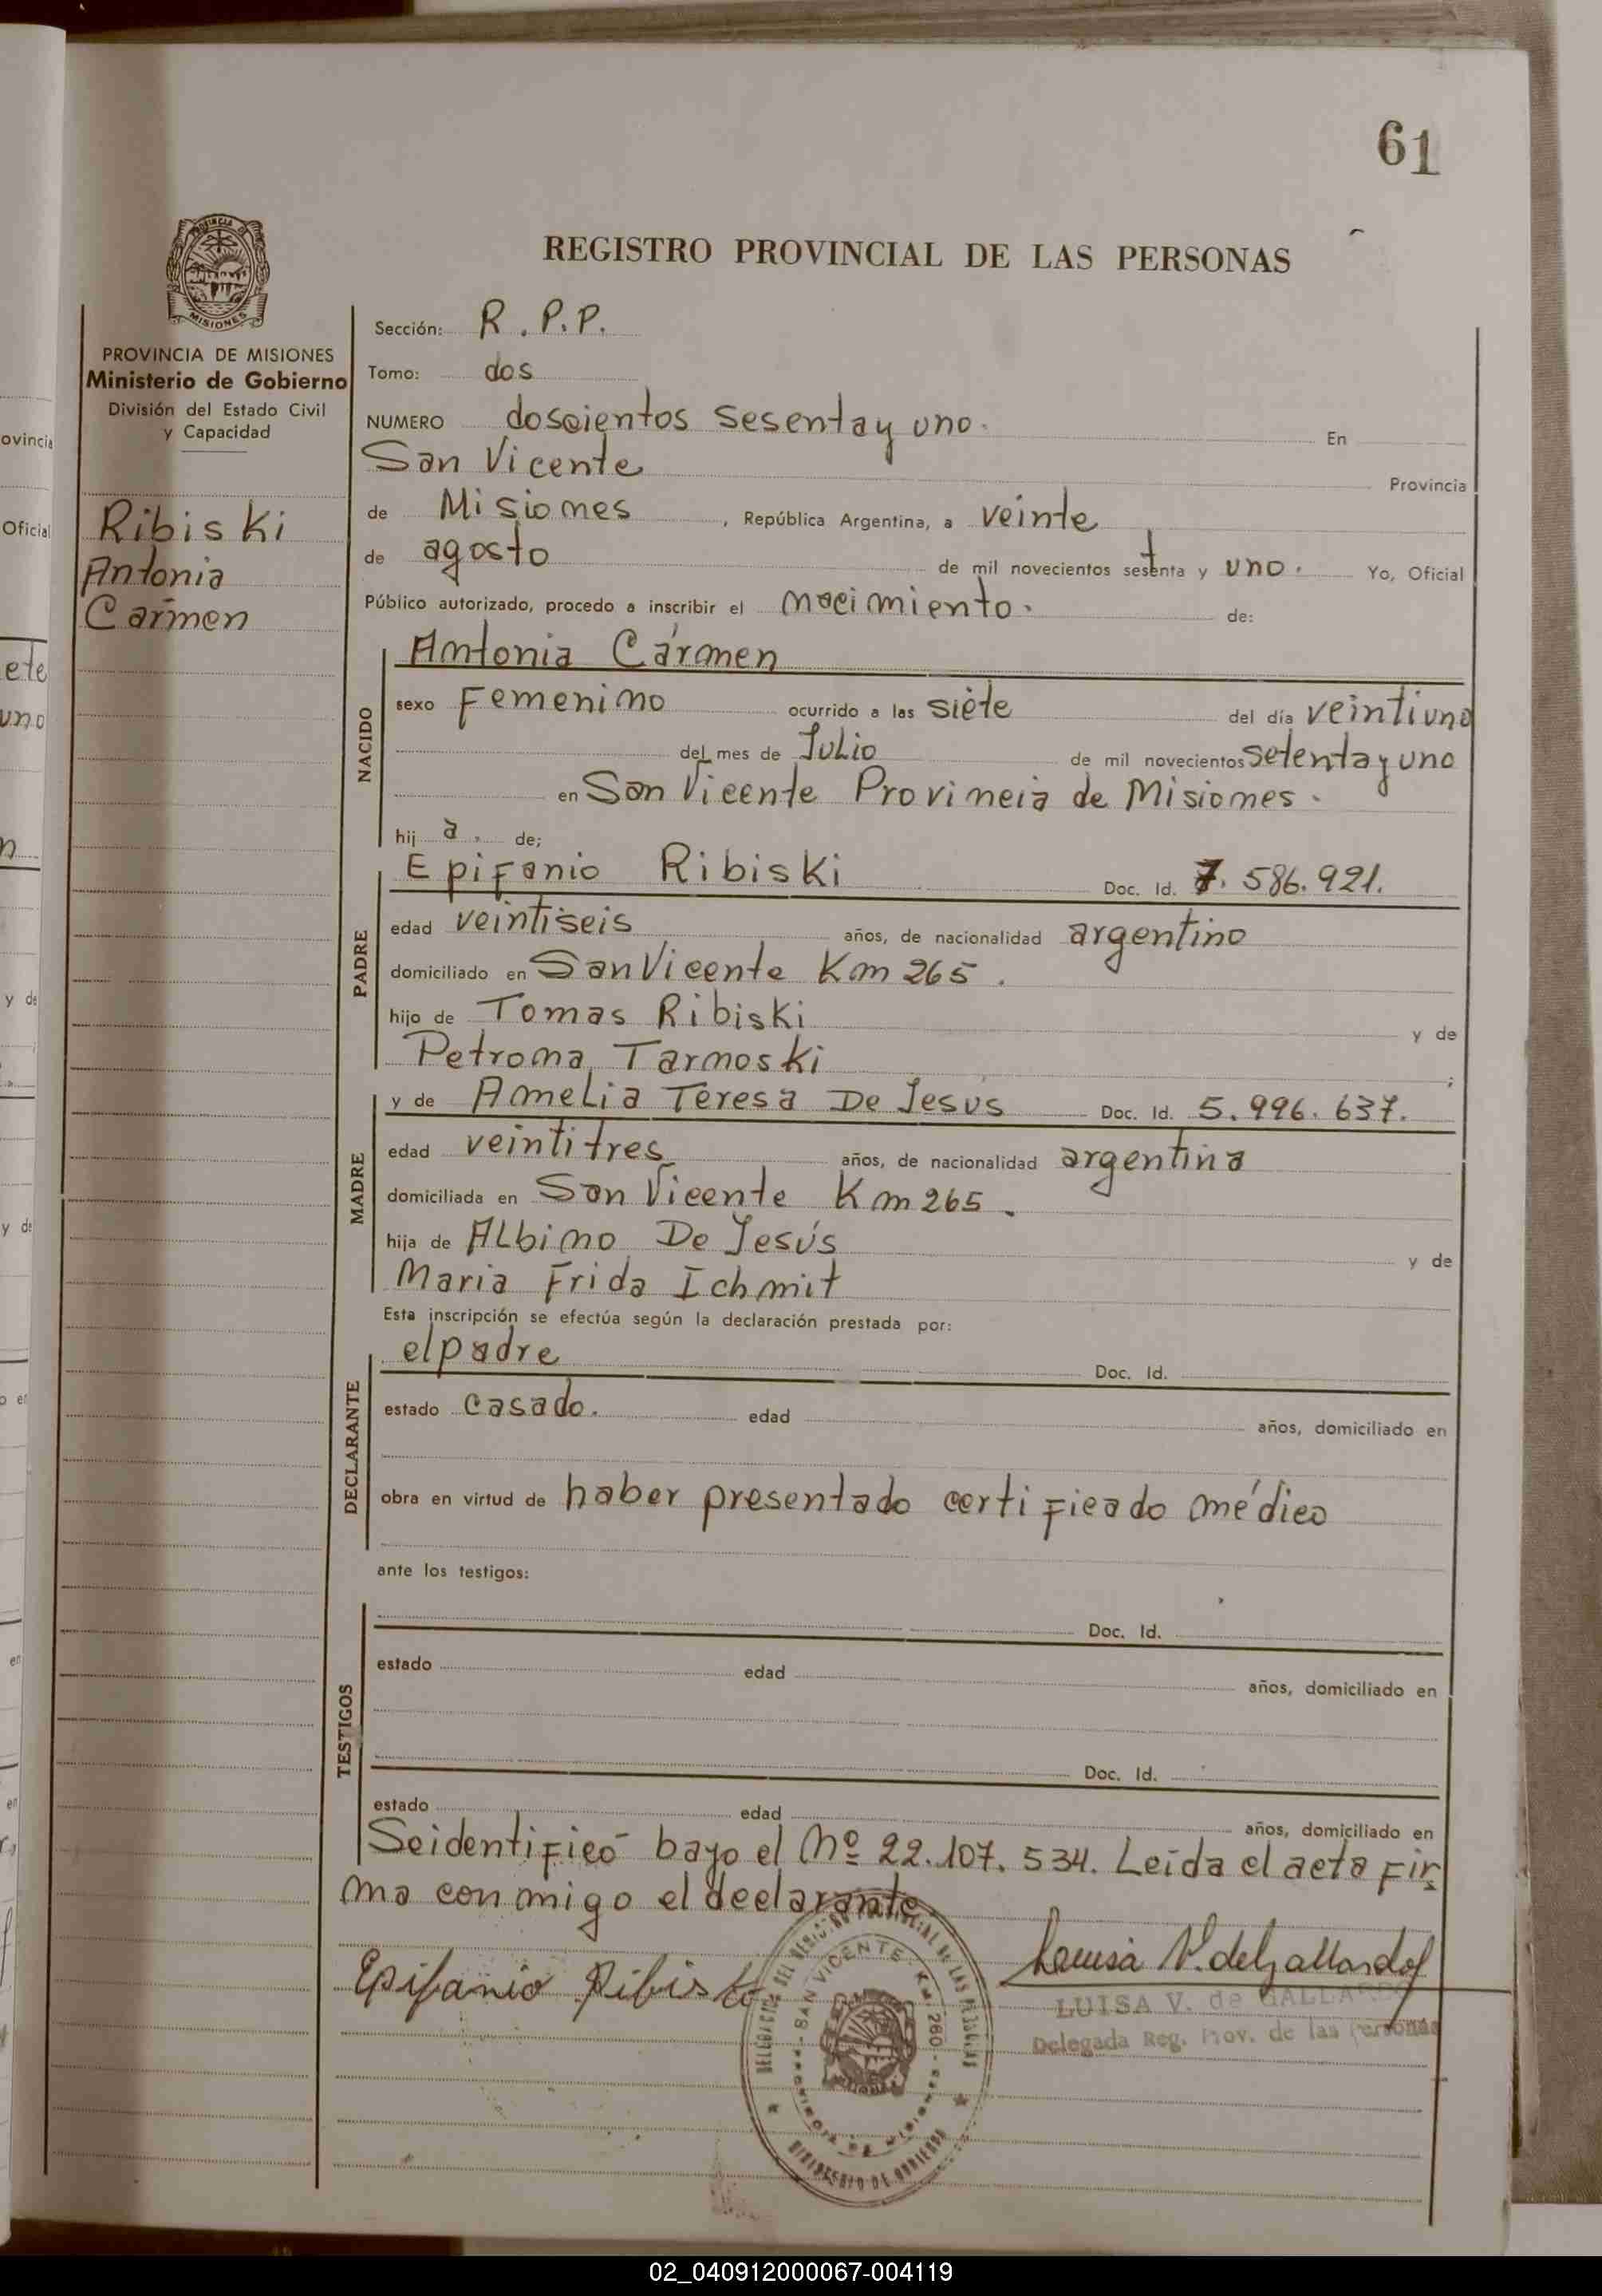 61
REGISTRO PROVINCIAL DE LAS PERSONAS
MISIONES
PROVINCIA DE MISIONES
Ministerio de Gobierno
División del Estado Civil
y Capacidad
Ribiski
Antonia
Carmen
Sección: R. P. P.
Tomo: dos
NUMERO doscientos sesenta y uno. En
San Vicente Provincia
de Misiones, República Argentina, a veinte
de agosto de mil novecientos setenta y uno. Yo, Oficial
Público autorizado, procedo a inscribir el nacimiento. de:
NACIDO
Antonia Cármen
sexo Femenino ocurrido a las siete del día veintiuno
del mes de Julio de mil novecientos setenta y uno
en San Vicente Provincia de Misiones.
hij a. de;
PADRE
Epifanio Ribiski Doc. Id. 7.586.921.
edad veintiseis años, de nacionalidad argentino
domiciliado en San Vicente Km 265.
hijo de Tomas Ribiski y de
Petrona Tarnoski;
MADRE
y de Amelia Teresa De Jesús Doc. Id. 5.996.637.
edad veintitres años, de nacionalidad argentina
domiciliada en San Vicente Km 265.
hija de Albino De Jesús y de
Maria Frida Ichmit
Esta inscripción se efectúa según la declaración prestada por:
DECLARANTE
el padre Doc. Id.
estado casado. edad años, domiciliado en
obra en virtud de haber presentado certificado médico
ante los testigos:
TESTIGOS
Doc. Id.
estado edad años, domiciliado en
Doc. Id.
estado edad años, domiciliado en
Se identificó bajo el Nº 22.107.534. Leída el acta fir
ma conmigo el declarante
Epifanio Ribiski
Luisa V. de Gallardo
LUISA V. de GALLARDO
Delegada Reg. Prov. de las Personas
SAN VICENTE - Km. 260 -
MINISTERIO DE GOBIERNO
02_040912000067-004119